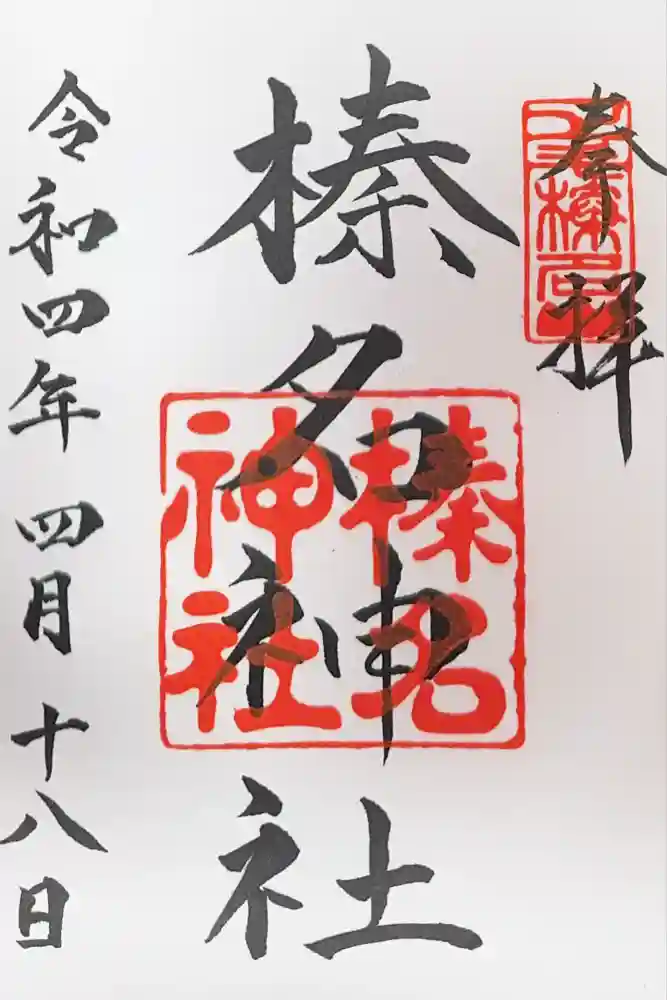 奉拝
榛名神社
榛名神社
令和四年 四月 十八日